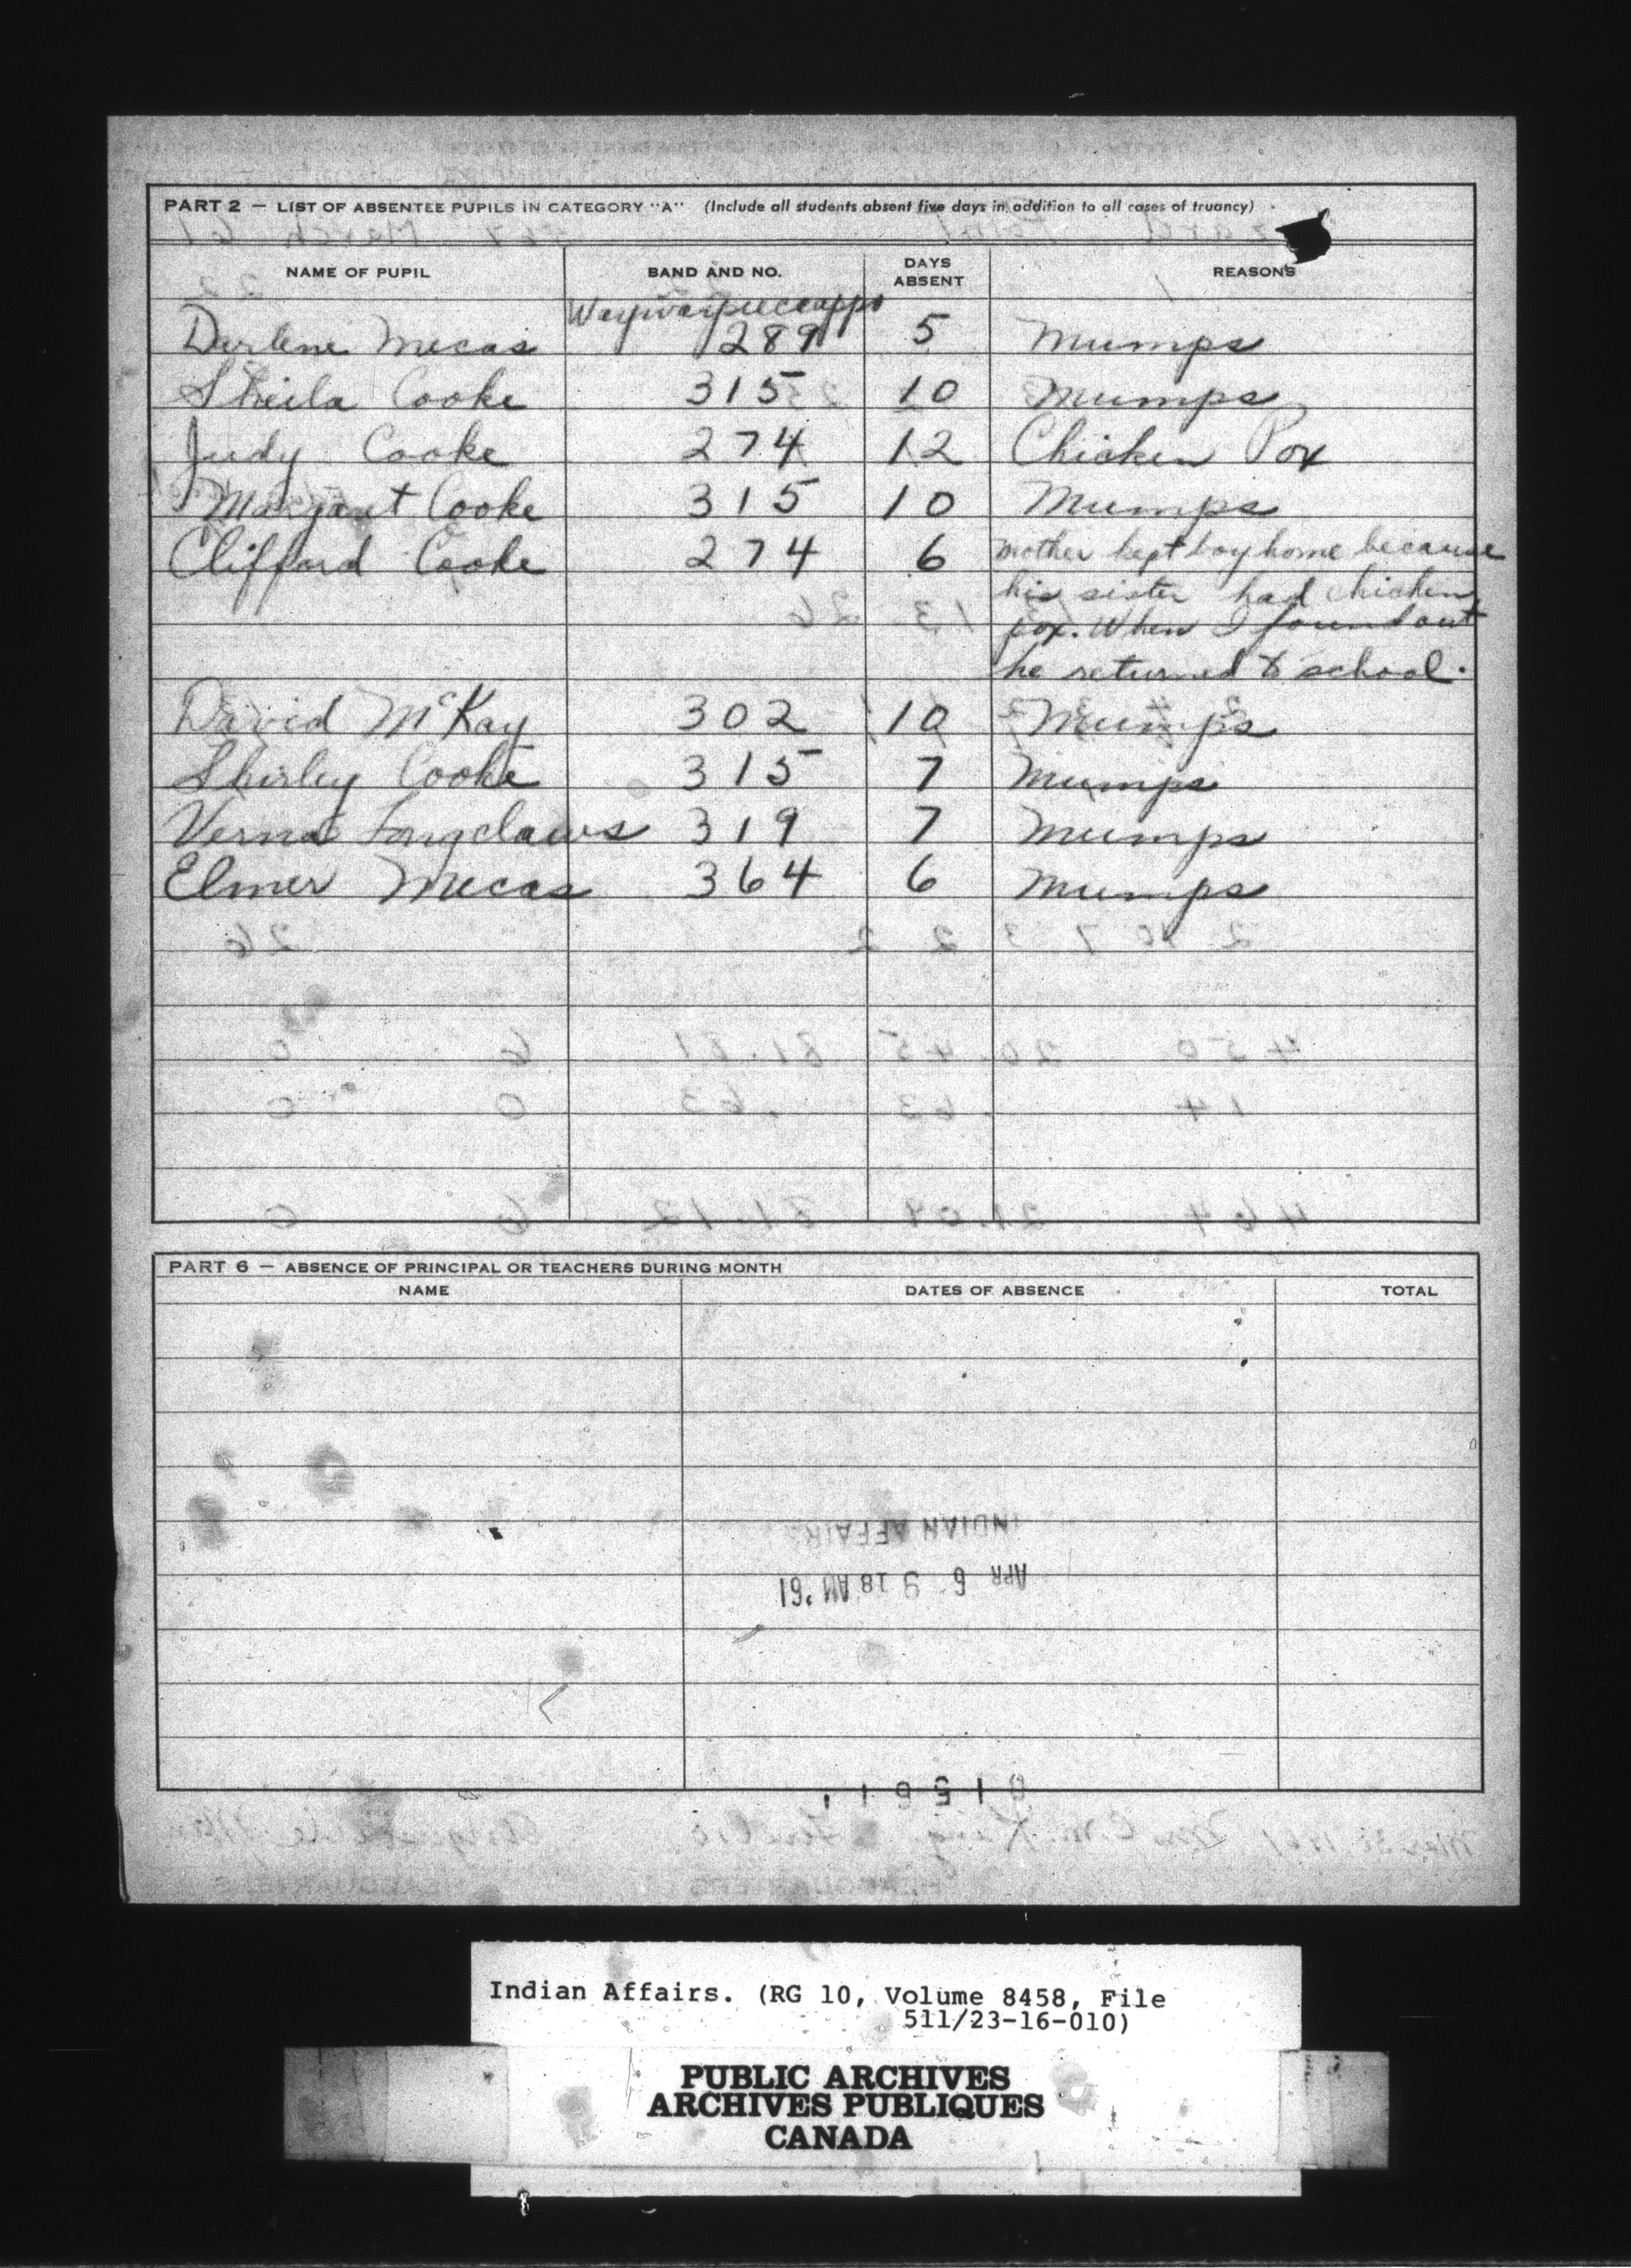 PART 2 — LIST OF ABSENTEE PUPILS IN CATEGORY "A" (Include all students absent five days in addition to all cases of truancy)
NAME OF PUPIL BAND AND NO. DAYS ABSENT REASONS
Waywayseecappo
Darlene Mecas 289 5 Mumps
Sheila Cooke 315 10 Mumps
Judy Cooke 274 12 Chicken Pox
Margaret Cooke 315 10 Mumps
Clifford Cooke 274 6 Mother kept boy home because
his sister had chicken
pox. When I found out
he returned to school.
David McKay 302 10 Mumps
Shirley Cooke 315 7 Mumps
Verna Longclaws 319 7 Mumps
Elmer Mecas 364 6 Mumps
PART 6 — ABSENCE OF PRINCIPAL OR TEACHERS DURING MONTH
NAME DATES OF ABSENCE TOTAL
INDIAN AFFAIRS
APR 6 9 18 AM '61
Indian Affairs. (RG 10, Volume 8458, File
511/23-16-010)
PUBLIC ARCHIVES
ARCHIVES PUBLIQUES
CANADA